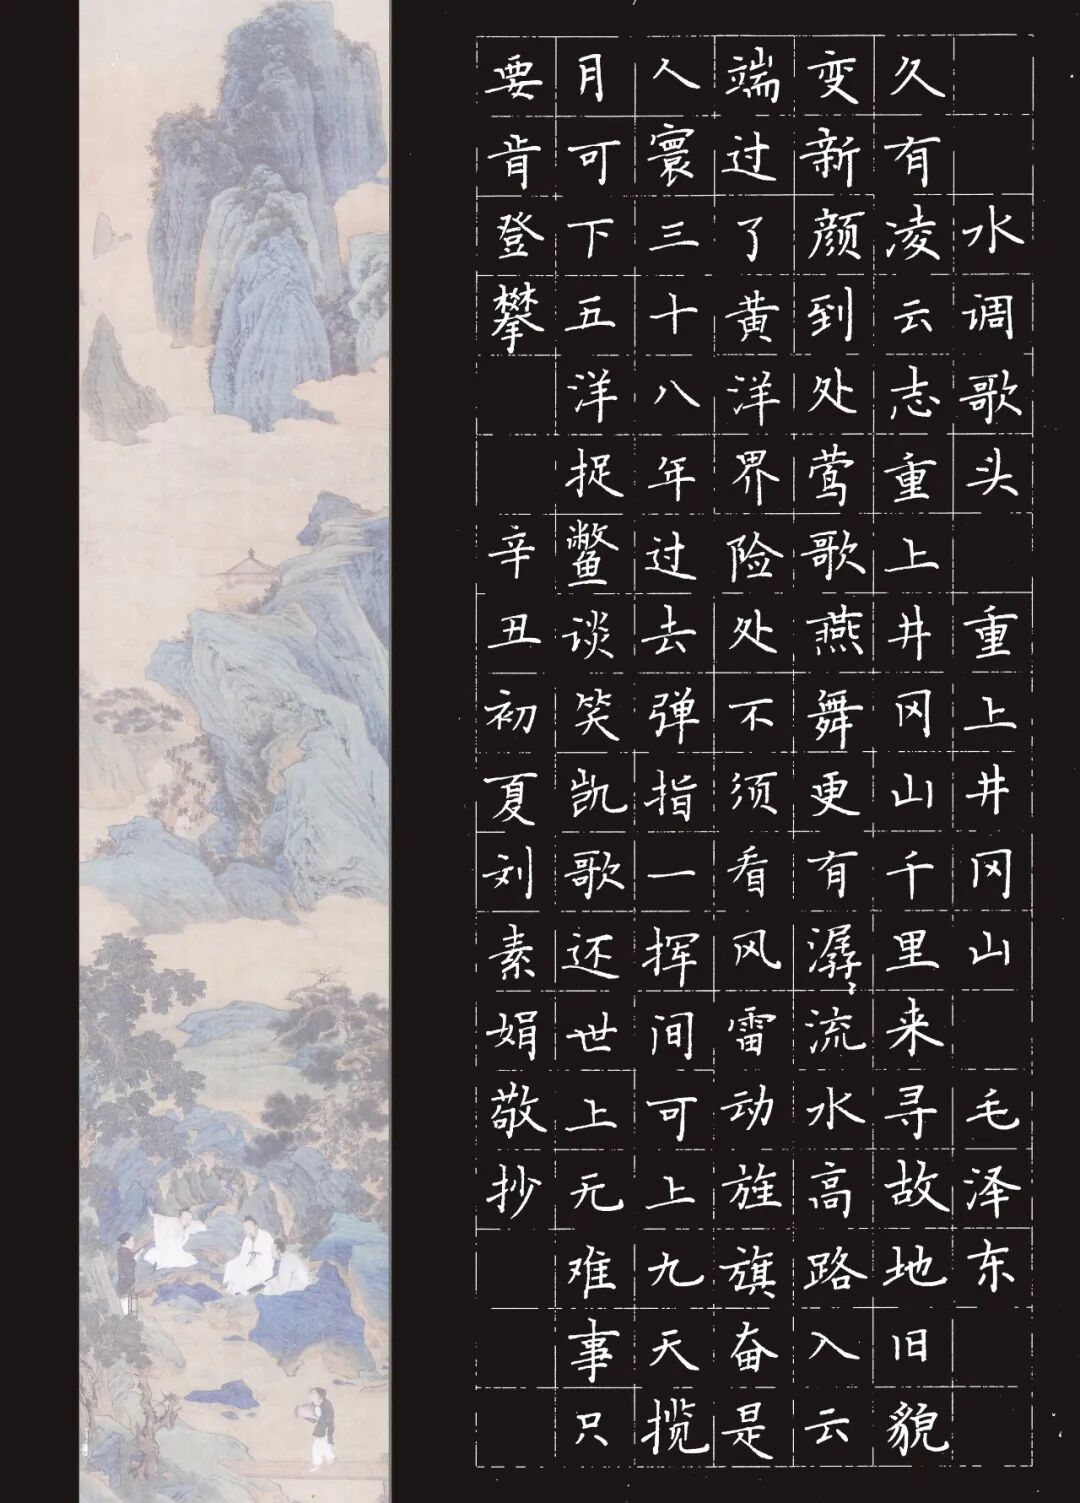 水调歌头 重上井冈山 毛泽东
久有凌云志重上井冈山千里来寻故地旧貌
变新颜到处莺歌燕舞更有潺〻流水高路入云
端过了黄洋界险处不须看风雷动旌旗奋是
人寰三十八年过去弹指一挥间可上九天揽
月可下五洋捉鳖谈笑凯歌还世上无难事只
要肯登攀 辛丑初夏刘素娟敬抄